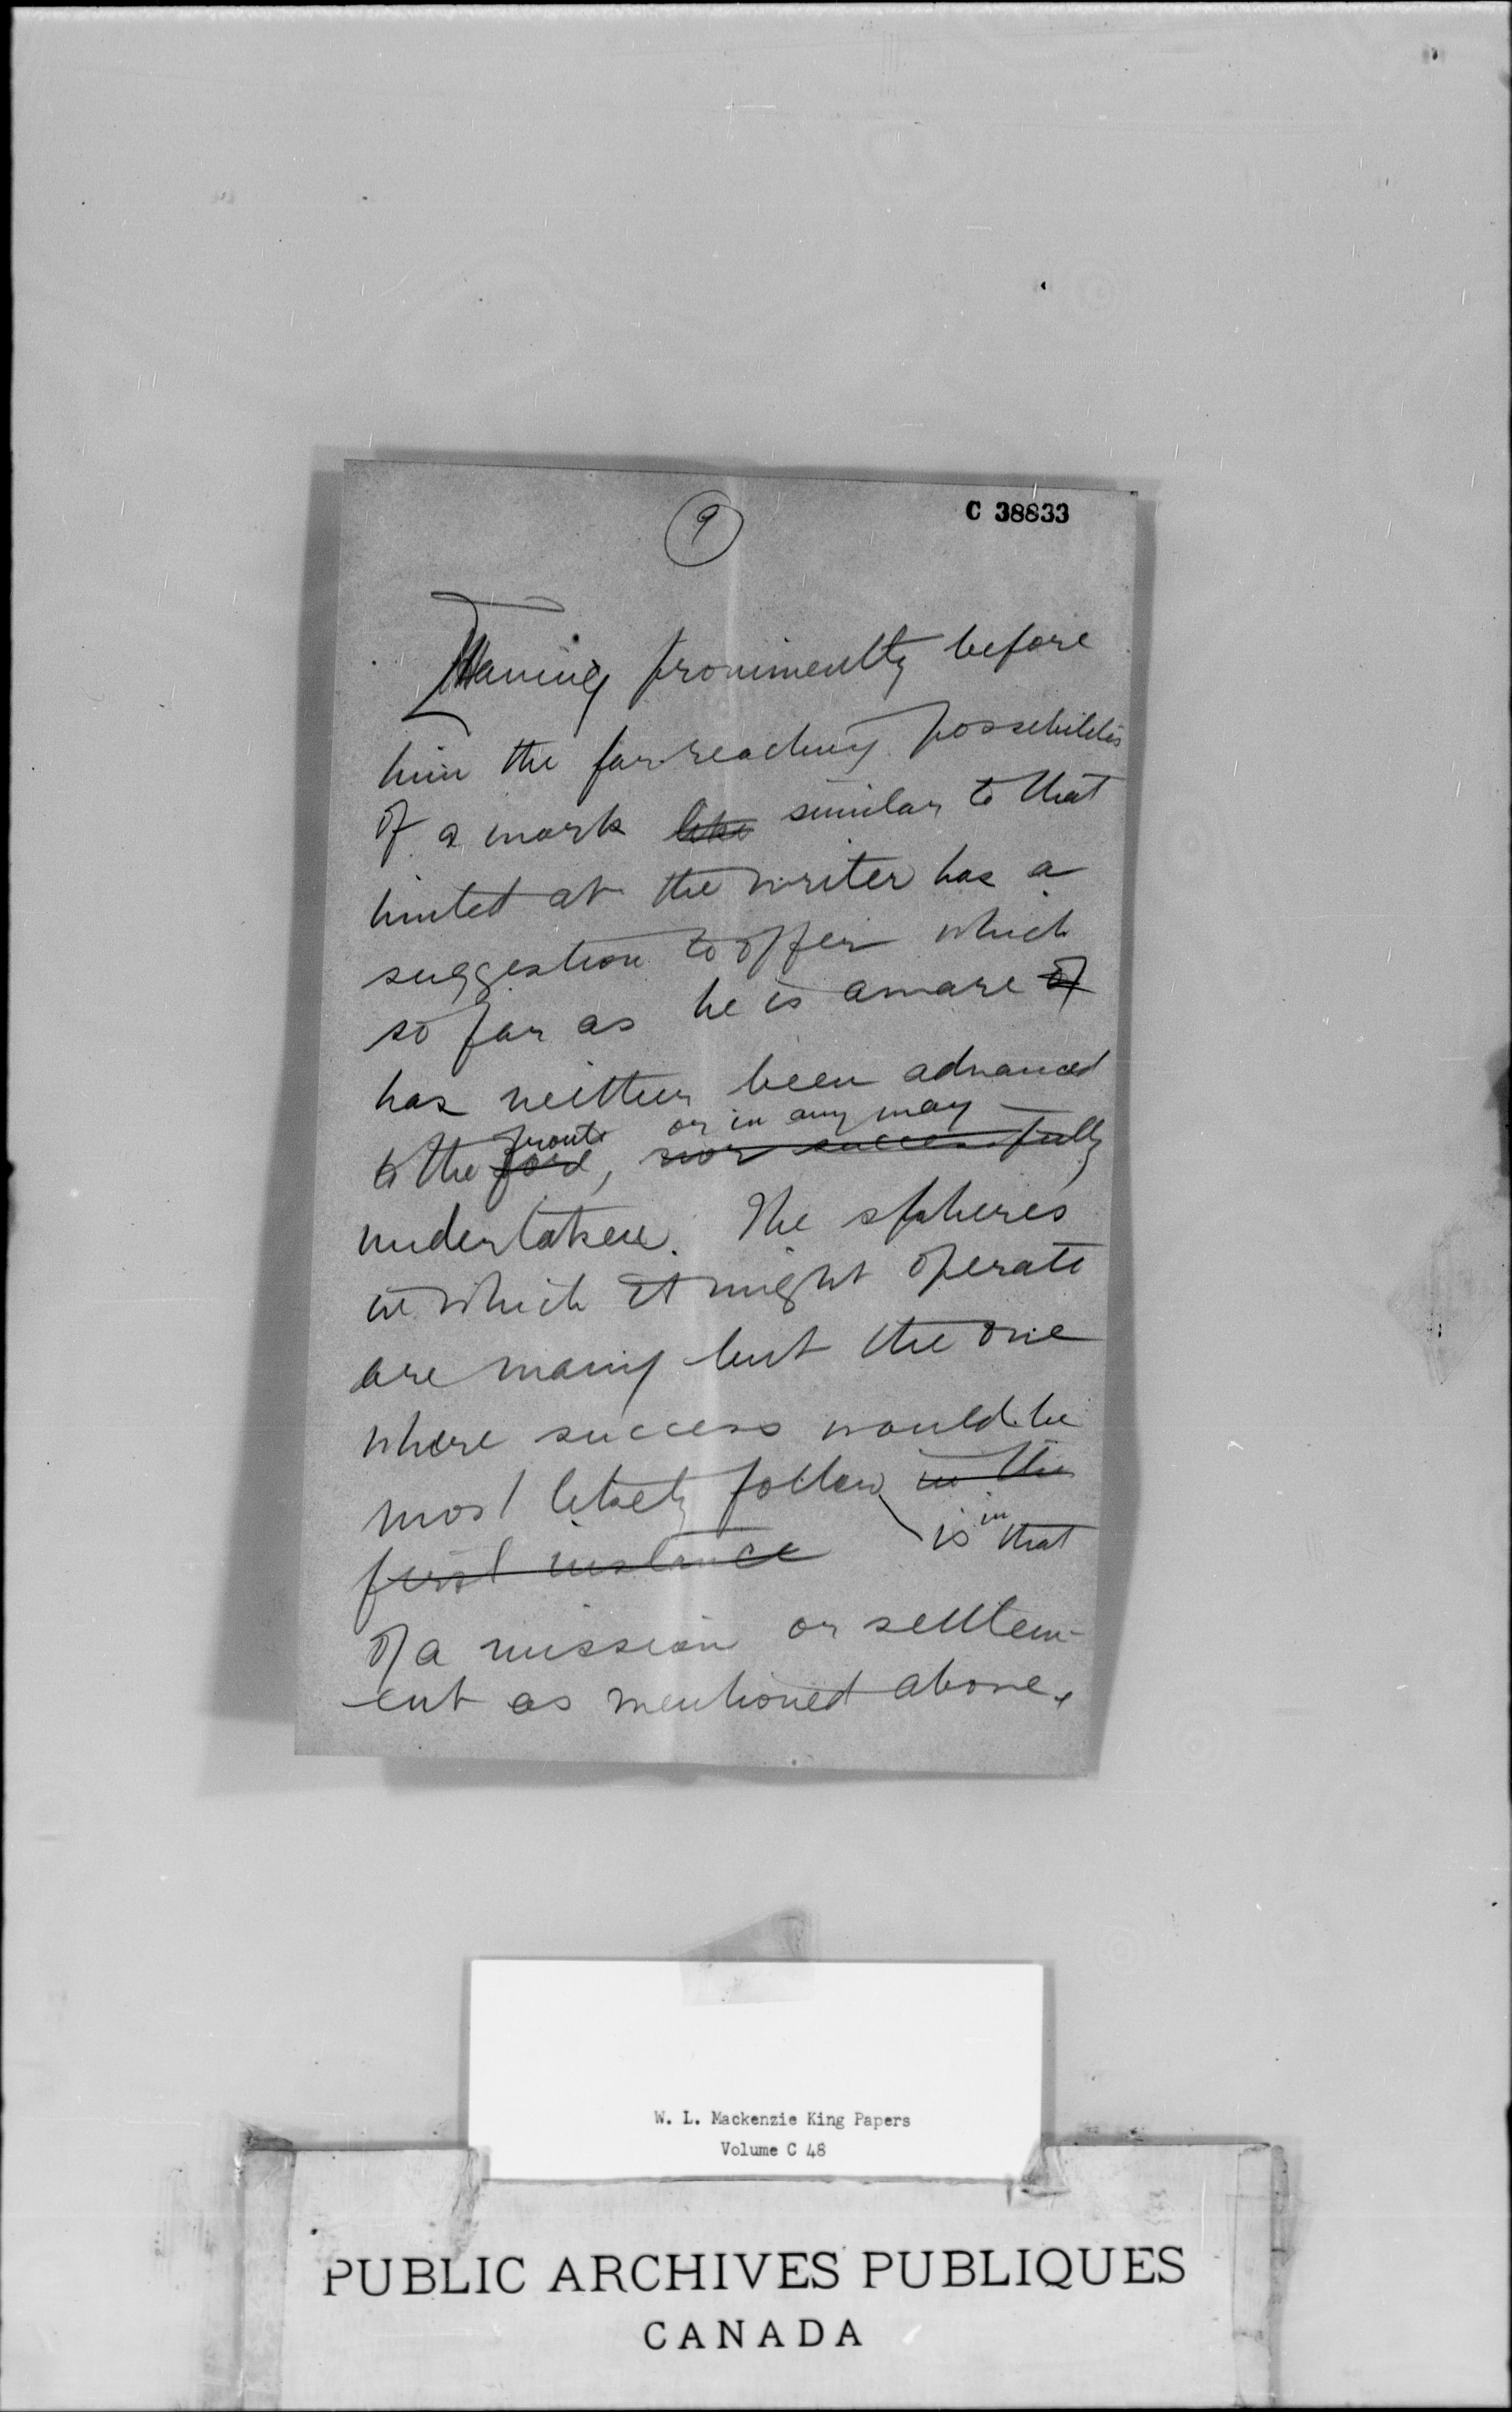 9
C 38833
Having prominently before
him the far-reaching possibilities
of a work like similar to that
hinted at the writer has a
suggestion to offer which
so far as he is aware of
has neither been advanced
front or in any way
to the fore, nor successfully
undertaken. The spheres
in which it might operate
are many but the one
where success would be
most likely follow in the
first instance is in that
of a mission or settlem-
ent as mentioned above.
W. L. Mackenzie King Papers
Volume C 48
PUBLIC ARCHIVES PUBLIQUES
CANADA